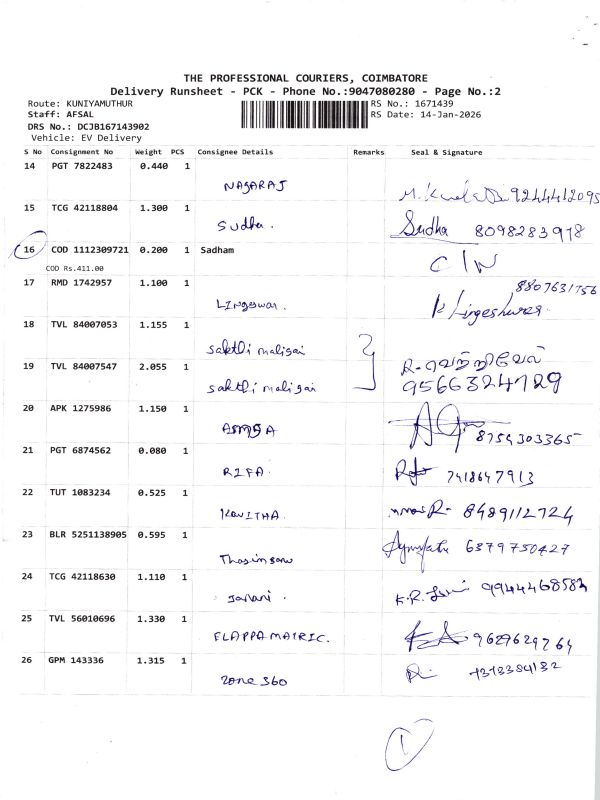 THE PROFESSIONAL COURIERS, COIMBATORE
Delivery Runsheet - PCK - Phone No.:9047080280 - Page No.:2
Route: KUNIYAMUTHUR RS No.: 1671439
Staff: AFSAL RS Date: 14-Jan-2026
DRS No.: DCJB167143902
Vehicle: EV Delivery
S No Consignment No Weight PCS Consignee Details Remarks Seal & Signature
14 PGT 7822483 0.440 1
NAGARAJ 9244412095
15 TCG 42118804 1.300 1
Sudha. Sudha 8098283978
16 COD 1112309721 0.200 1 Sadham
COD Rs.411.00 C/N
17 RMD 1742957 1.100 1 8807631756
Lingeswar. K Lingeshwar.
18 TVL 84007053 1.155 1
Sakthi maligai
19 TVL 84007547 2.055 1 R-வெற்றிவேல்
Sakthi maligai 9566324729
20 APK 1275986 1.150 1
8754303365
21 PGT 6874562 0.080 1
RIFA. 7418647913
22 TUT 1083234 0.525 1
KAVITHA 8489112724
23 BLR 5251138905 0.595 1
6379750427
24 TCG 42118630 1.110 1
Janani. K.R. 9944468583
25 TVL 56010696 1.330 1
9629629764
26 GPM 143336 1.315 1
Zone 360
1